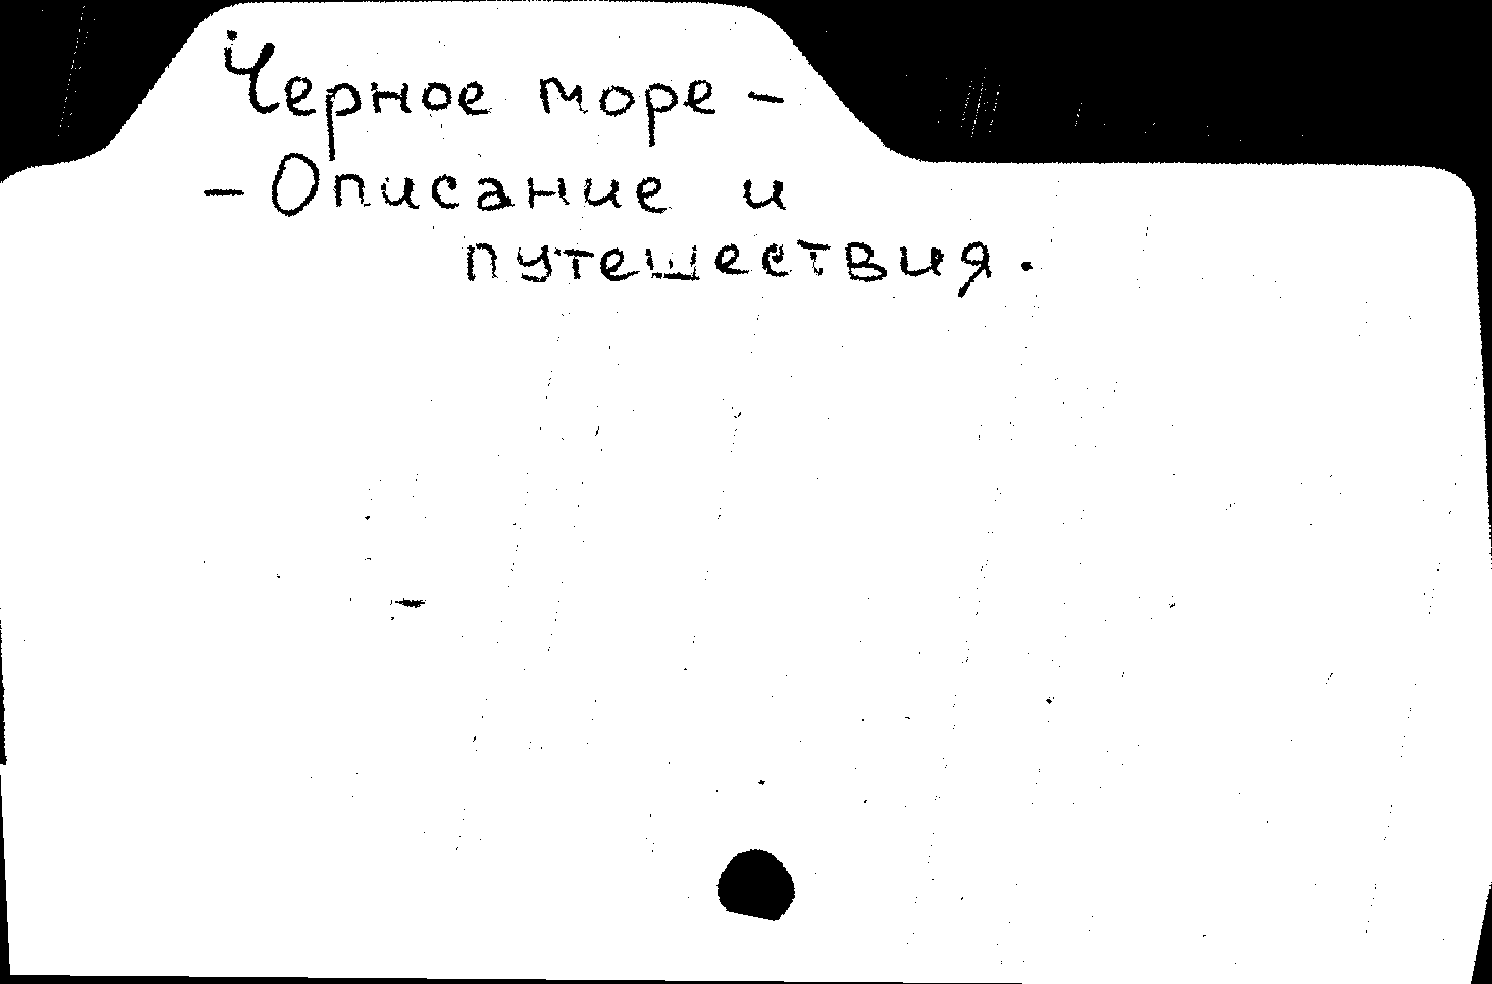 Черное море -
- Описание и
путешествия.